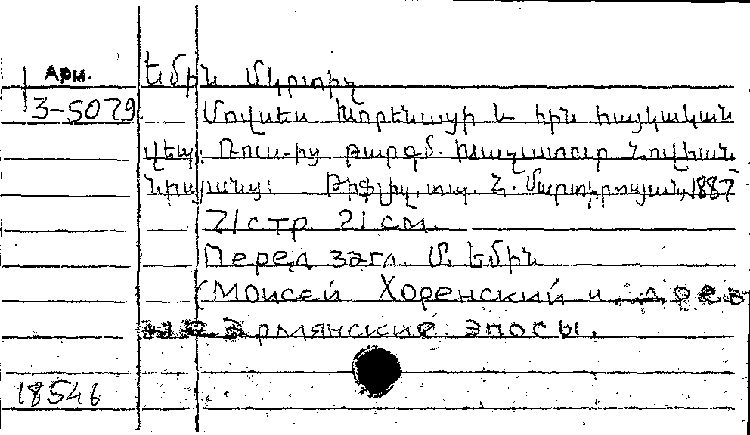 Арм. Եմին Մկրտիչ
3-5079 Մովսես Խորենացի և հին հայկական
վեպ: Ռուս-ից թարգմ. Խաչատուր Հովհան
նիսյանց: Թիֆլիս, տպ. Հ. Մարտիրոսյան, 1887
21 стр. 21 см.
Перед загл. Մ. Եմին
(Моисей Хоренский и древ
не армянские эпосы.
18546